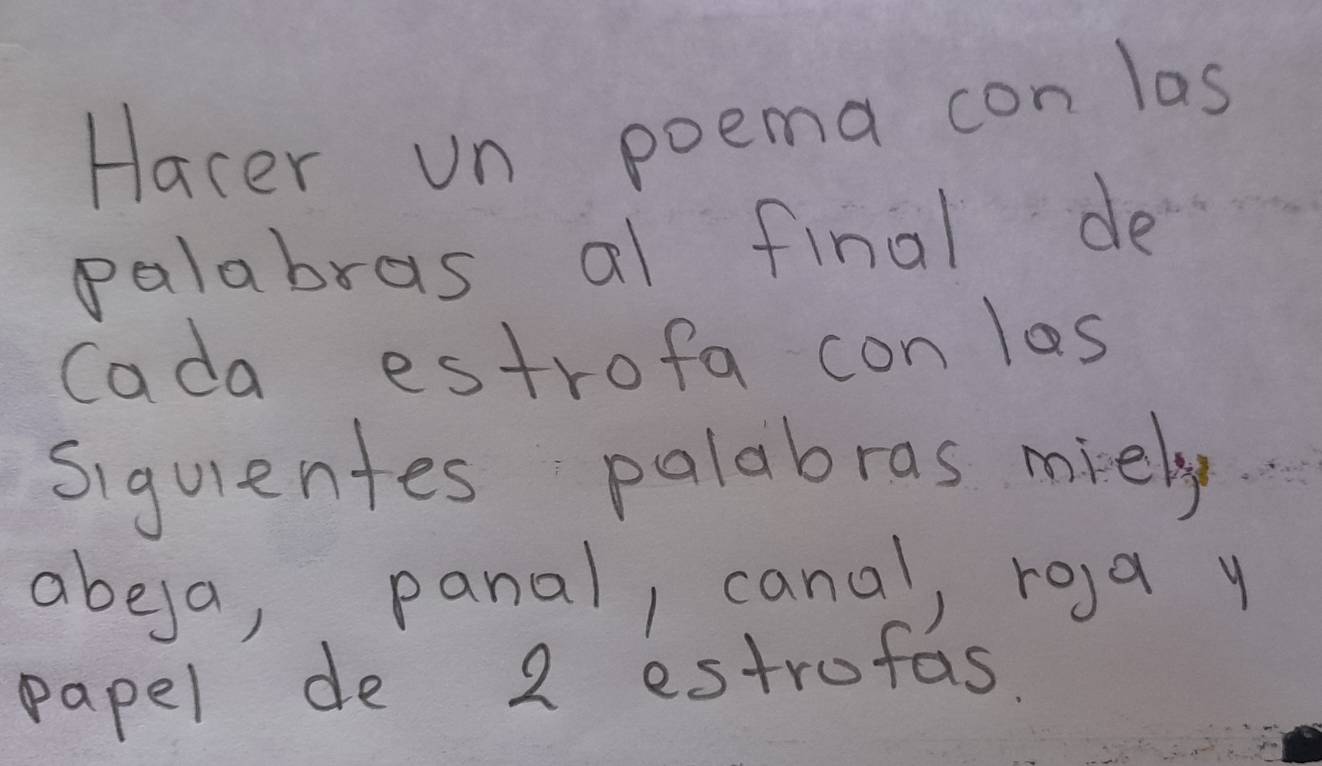 Hacer un poema con las
palabras al final de
Cada estrofa con las
Siguientes palabras miel,
abeja, panal, canal, roja y
papel de 2 estrofas.